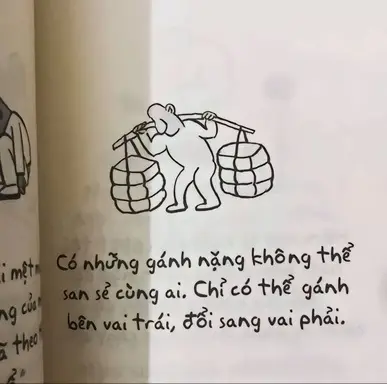 Có những gánh nặng không thể
san sẻ cùng ai. Chỉ có thể gánh
bên vai trái, đổi sang vai phải.
i mệt
ng của
ã theo